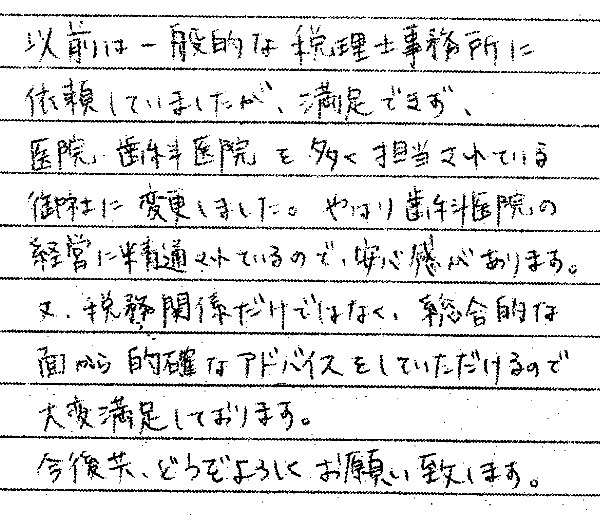 以前は一般的な税理士事務所に
依頼していましたが、満足できず、
医院、歯科医院を多く担当されている
御社に変更しました。やはり歯科医院の
経営に精通されているので、安心感があります。
又、税務関係だけではなく、総合的な
面から的確なアドバイスをしていただけるので
大変満足しております。
今後共、どうぞよろしくお願い致します。